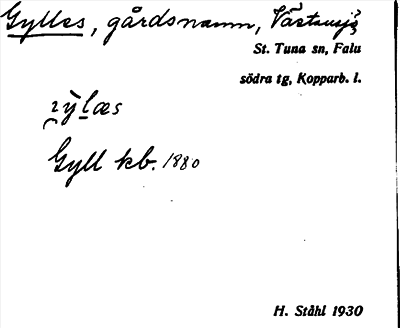 Gylles, gårdsnamn, Västansjö
St. Tuna sn, Falu
södra tg, Kopparb. l.
Gyll kb. 1880
H. Ståhl 1930